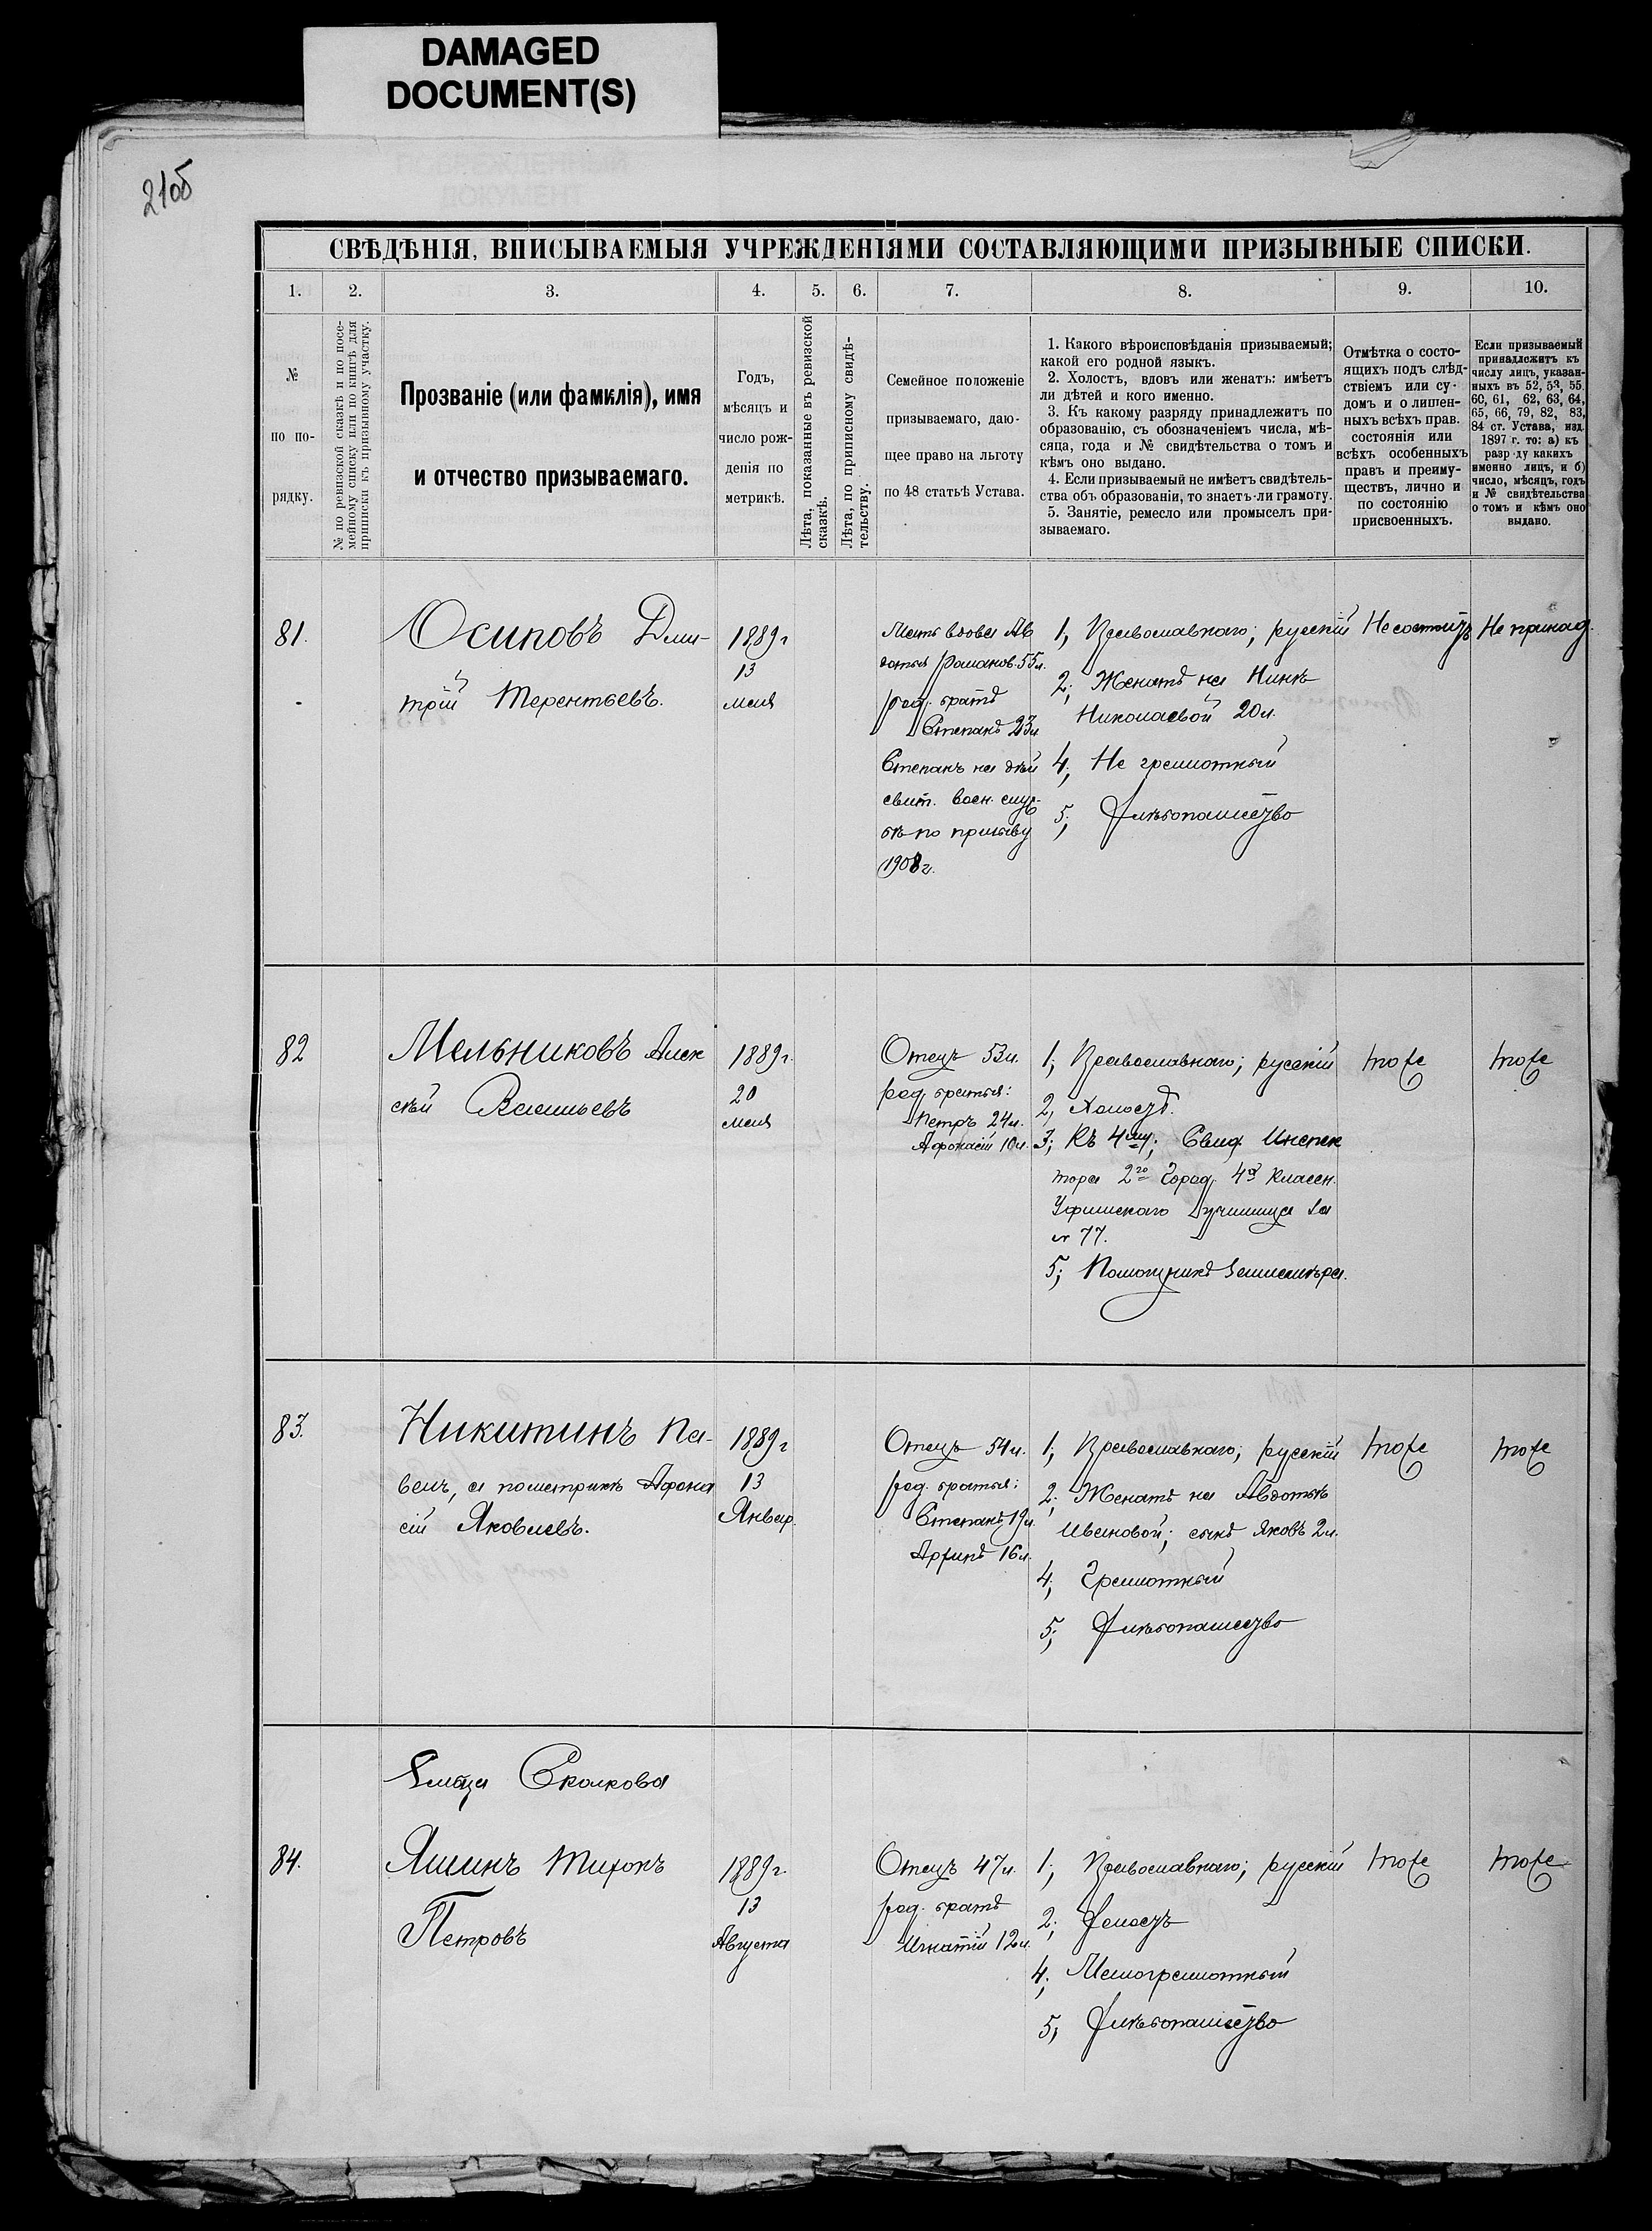 DAMAGED
DOCUMENT(S)
210б
СВѢДѢНІЯ, ВПИСЫВАЕМЫЯ УЧРЕЖДЕНІЯМИ СОСТАВЛЯЮЩИМИ ПРИЗЫВНЫЕ СПИСКИ.
1.
2.
3.
4.
5.
6.
7.
8.
9.
10.
№
по по-
рядку.
№ по ревизской сказкѣ и по посе-
мейному списку или по книгѣ для
приписки къ призывному участку.
Прозваніе (или фамилія), имя
и отчество призываемаго.
Годъ,
мѣсяцъ и
число рож-
денія по
метрикѣ.
Лѣта, показанные въ ревизской
сказкѣ.
Лѣта, по приписному свидѣ-
тельству.
Семейное положеніе
призываемаго, даю-
щее право на льготу
по 48 статьѣ Устава.
1. Какого вѣроисповѣданія призываемый;
какой его родной языкъ.
2. Холостъ, вдовъ или женатъ: имѣетъ
ли дѣтей и кого именно.
3. Къ какому разряду принадлежитъ по
образованію, съ обозначеніемъ числа, мѣ-
сяца, года и № свидѣтельства о томъ и
кѣмъ оно выдано.
4. Если призываемый не имѣетъ свидѣтель-
ства объ образованіи, то знаетъ-ли грамоту.
5. Занятіе, ремесло или промыселъ при-
зываемаго.
Отмѣтка о состо-
ящихъ подъ слѣд-
ствіемъ или су-
домъ и о лишен-
ныхъ всѣхъ прав.
состоянія или
всѣхъ особенныхъ
правъ и преиму-
ществъ, лично и
по состоянію
присвоенныхъ.
Если призываемый
принадлежитъ къ
числу лицъ, указан-
ныхъ въ 52, 53, 55.
60, 61, 62, 63, 64,
65, 66, 79, 82, 83,
84 ст. Устава, изд.
1897 г. то: а) къ
разр ду какихъ
именно лицъ, и б)
число, мѣсяцъ, годъ
и № свидѣтельства
о томъ и кѣмъ оно
выдано.
81.
Осиповъ Дми-
трій Терентьевъ.
1889 г
13
мая
Мать вдова Ав
дотья Романов. 55 л.
род. братъ
Степанъ 23 л
Степанъ на дѣй
свит. воен. служ-
бѣ по призыву
1908 г.
1, Православнаго; русскій
2; Женатъ на Нинѣ
Николаевой 20 л.
4; Не грамотный
5; Хлѣбопашество
Не состоитъ
Не принад.
82
Мельниковъ Алек
сѣй Васильевъ
1889 г.
20
мая
Отецъ 53 л.
род. братья:
Петръ 24 л.
Афонасій 10 л.
1; Православнаго; русскій
2, Холостъ.
3; Къ 4му; Свид Инспек
тора 2го Город. 4х Классн.
Уфимскаго училища за
№ 77.
5; Помощникъ землемѣра.
тоже
тоже
83.
Никитинъ Па-
велъ, а пометрикѣ Афона
сій Яковлевъ.
1889 г
13
Январ.
Отецъ 54 л.
род. братья:
Степанъ 19 л.
Архипъ 16 л.
1; Православнаго; русскій
2; Женатъ на Авдотьѣ
Ивановой; сынъ Яковъ 2 л.
4; Грамотный
5; Хлѣбопашество
тоже
тоже
Сколкова
84.
Яшинъ Тихонъ
Петровъ
1889 г.
13
Августа
Отецъ 47 л.
род. братъ
Игнатій 12 л.
1; Православнаго; русскій
2; Холостъ
4; Малограмотный
5; Хлѣбопашество
тоже
тоже